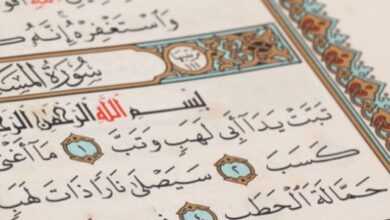 وَاسْتَغْفِرْهُ إِنَّهُ
سُورَةُ المَسَ
بِسْمِ اللَّهِ الرَّحْمَٰنِ الرَّحِ
تَبَّتْ يَدَا أَبِي لَهَبٍ وَتَبَّ ١ مَا أَغْنَىٰ
كَسَبَ ٢ سَيَصْلَىٰ نَارًا ذَاتَ لَهَبٍ
حَمَّالَةَ الْحَطَبِ ٤